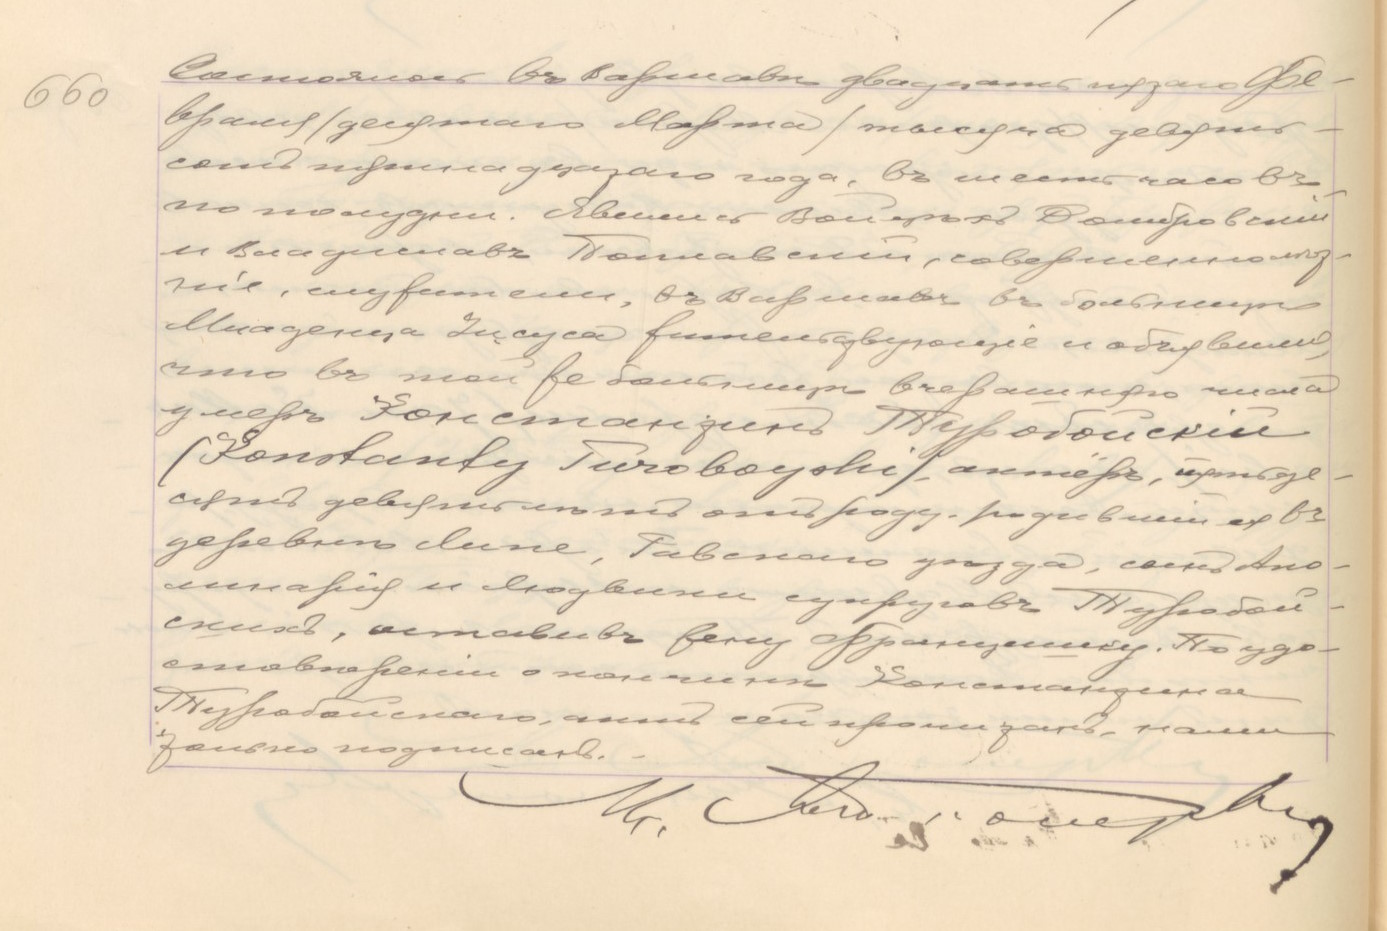 660
Состоялось въ Варшавѣ двадцать пятаго Фе-
враля /десятаго Марта/ тысяча девять-
сотъ пятнадцатаго года, въ шесть часовъ
по полудни. Явились Войцѣхъ Домбровскій
и Владиславъ Поплавскій, совершеннолѣт-
ніе, служители, въ Варшавѣ въ больницѣ
Младенца Іисуса жительствующіе и объявили,
что въ той же больницѣ вчерашняго числа
умеръ Константинъ Туробойскій
/Konstanty Turoboyski/, актёръ, пятьде-
сятъ девять лѣтъ отъ роду, родившійся въ
деревнѣ Липе, Равскаго уѣзда, сынъ Апо-
линарія и Людвики супруговъ Туробой-
скихъ, оставивъ жену Францишку. По удо-
стовѣреніи о кончинѣ Константина
Туробойскаго, актъ сей прочитанъ, нами
только подписанъ.